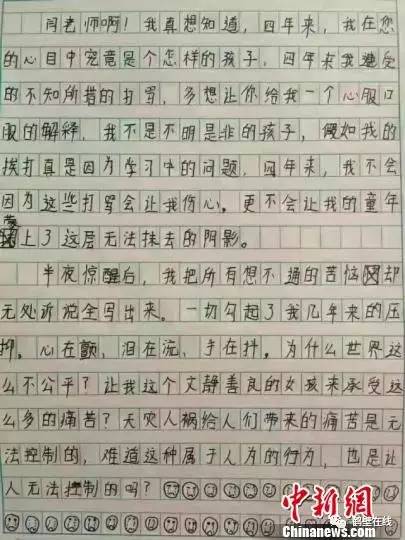 闫老师啊！我真想知道，四年来，我在您
的心目中究竟是个怎样的孩子，四年来我遭受
的不知所措的打骂，多想让你给我一个心服口
服的解释，我不是不明是非的孩子，假如我的
挨打真是因为学习中的问题，四年来，我不会
因为这些打骂会让我伤心。更不会让我的童年
蒙上了这层无法抹去的阴影。
半夜惊醒后，我把所有想不通的苦恼却
无处诉说全写出来。一切勾起了我几年来的压
抑。心在颤，泪在流，手在抖。为什么世界这
么不公平？让我这个文静善良的女孩来承受这
么多的痛苦？天灾人祸给人们带来的痛苦是无
法控制的，难道这种属于人为的行为，也是让
人无法控制的吗？
中新网
Chinanews.com
鹤壁在线